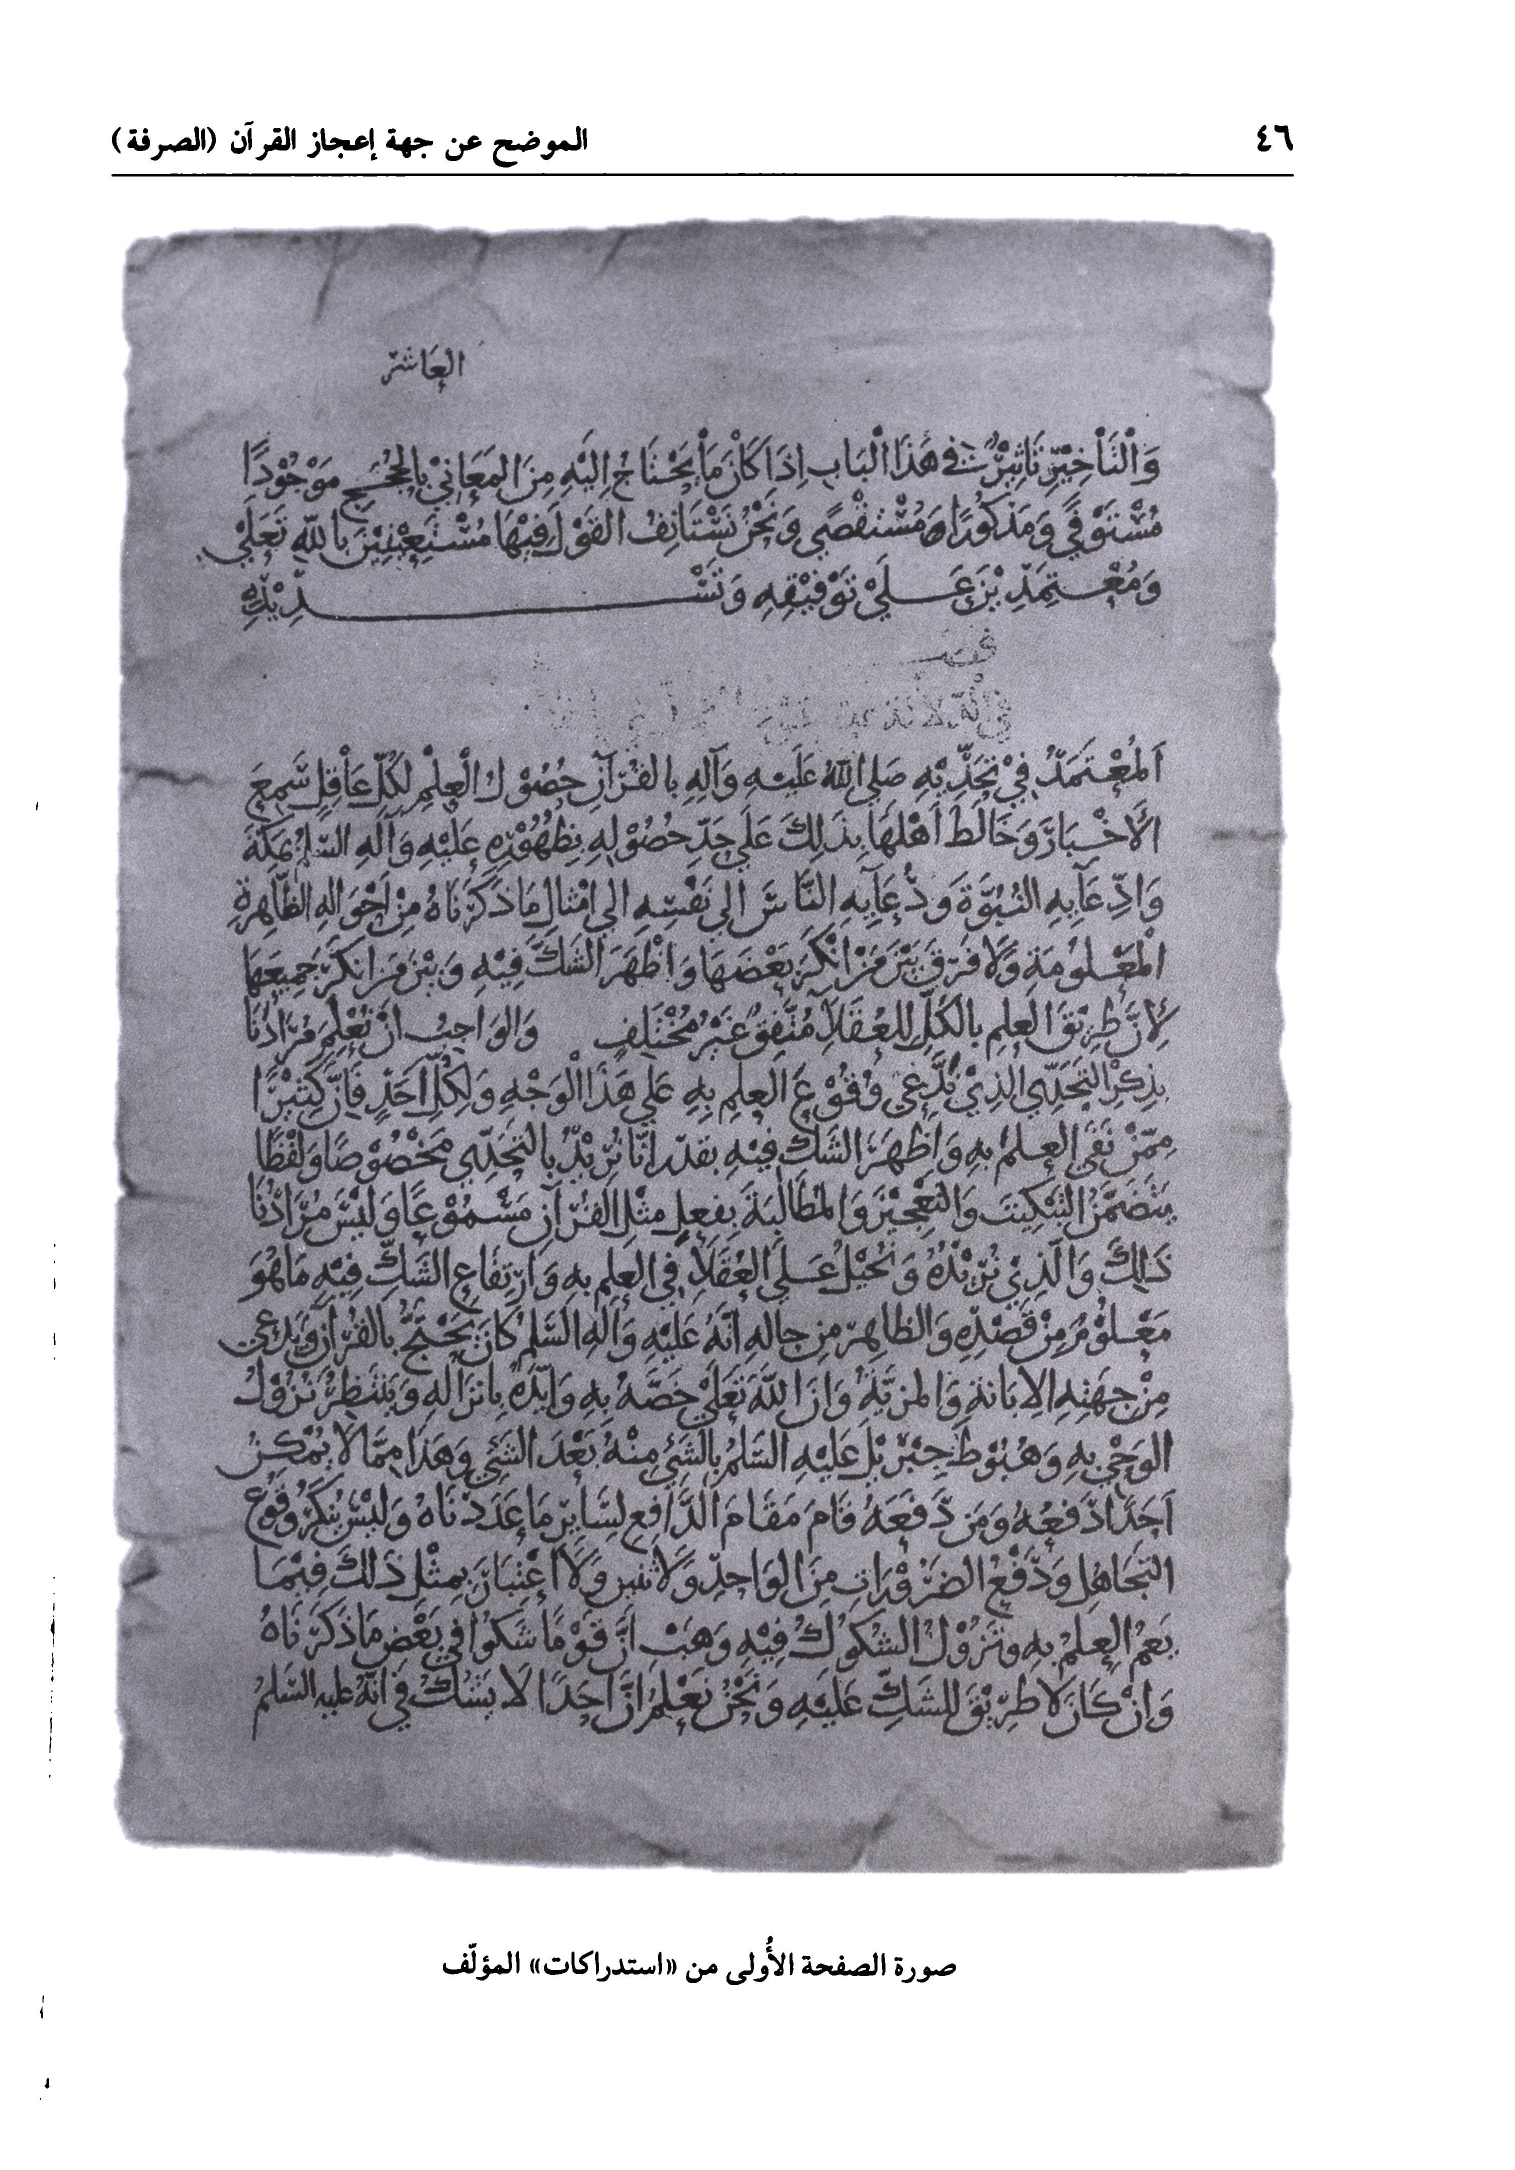 ٤٦
الموضح عن جهة إعجاز القرآن (الصرفة)
العاشر
وَالْتَأْخِيْرِ تَاثِيْرٌ في هَذَا الْبَابِ اِذَا كَانَ مَا يَحْتَاجُ اِلَيْهِ مِنَ المَعَانِيْ بِالحُجَجِ مَوْجُوْدًا
مُسْتَوْفًي وَمَذكُورًا وَمُسْتَقْصًي وَنَحْنُ نَسْتَانِفُ القَوْلَ فِيْهَا مُسْتَعِيْنِيْنَ بِاللهِ تَعَلَيْ
وَمُعْتَمِدِيْنَ عَلَيْ تَوْفِيْقِهِ وَتَسْدِيْدِهِ
فصل
في الدلالة
اَلمُعْتَمَدُ فِيْ تَحَدِّيْهِ صَلي اللهُ عَلَيْهِ وَآلِهِ بِالقُرْآنِ حُصُوْلُ الْعِلْمِ لِكُلِّ عَاقِلٍ سَمِعَ
الأَخْبَارَ وَخَالَطَ اَهْلَهَا بِذَلِكَ عَلَي حَدِّ حُصُوْلِهِ بِظُهُوْرِهِ عَلَيْهِ وَآلِهِ السَّلمُ بِمَكَّةَ
وَادِّعَآيِهِ النُبُوَّةَ وَدُعَآيِهِ النَّاسَ اِلي نَفْسِهِ اِلي امْثَالِ مَا ذَكَرْنَاهُ مِنْ اَحْوَالِهِ الظَّاهِرَةِ
الْمَعْلُومَةِ وَلَا فَرْقَ بَيْنَ مَنْ اَنْكَرَ بَعْضَهَا وَاَظْهَرَ الشَكَّ فِيْهِ وَبَيْنَ مَنْ اَنكَرَ جَمِيعَهَا
لِاَنَّ طَرِيْقَ العِلمِ بِالكُلِّ لِلعُقَلآ مُتَّفِقٌ غَيْرُ مُخْتَلِفٍ وَالوَاجِبُ اَنْ نُعْلِمَ مُرَادَنَا
بِذِكْرِ التَحَدِّي الذِيْ نَدَّعِي وُقُوْعَ العِلمِ بِهِ عَلَي هَذَا الْوَجْهِ وَلِكُلِّ اَحَدٍ فَاِنَّ كَثِيْرًا
مِمَّنْ نَفَي العِلمَ بِهِ وَاَظهَرَ الشَكَّ فِيْهِ يقدر اَنَّا نُرِيْدُ بِالتَحَدِّي مَخْصُوْصًا وَلَفْظًا
يَتَضَمَّنُ التَبْكِيتَ وَالتَعْجِيْزَ وَالمُطَالَبَةَ بِفِعلِ مِثْلِ القُرْآنِ مَسْمُوْعًا وَلَيْسَ مُرَادُنَا
ذَلِكَ وَالَّذِيْ نُرِيْدُهُ وَنُحِيْلُ عَلَي العُقَلآ فِي العِلمِ بِهِ وَارْتِفَاعِ الشَكِّ فِيْهِ مَا هُوَ
مَعْلُوْمٌ مِنْ قَصْدِهِ وَالظَاهِرُ مِن حَالِهِ اَنَّهُ عَلَيْهِ وَآلِهِ السَلمُ كَانَ يَحْتَجُّ بِالقُرْآنِ وَيَدعِي
مِنْ جِهَتِهِ الاِبَانةِ وَالمزيَّةَ وَاَنَّ اللهَ تَعَلَيْ خَصَّهُ بِهِ وَايَّدَهُ بِاِنزَالِهِ وَيَنْتَظِرُ نُزُوْلَ
الوَحْيِ بِهِ وَهُبُوْطَ جِبْرَئِيْلَ عَلَيْهِ السَلمُ بِالشَيْءِ مِنْهُ بَعْدَ الشَيْءِ وَهَذَا مِمَّا لَا يُمْكِنُ
اَحَدًا دَفْعُهُ وَمَن دَفَعَهُ قَامَ مَقَامَ الدَّافِعِ لِسَآيِرِ مَا عَدَدْنَاهُ وَلَيْسَ يُنكَرُ وُقُوْعُ
التجَاهلِ وَدَفْعُ الضَرُوْرَاتِ مِنَ الوَاحِدِ وَلاَثنَيْنِ وَلَا اِعْتِبَارَ بِمِثْلِ ذَلِكَ فِيْمَا
يَعمُ العِلمُ بِهِ وَتَزُوْلُ الشُكُوْكُ فِيْهِ وَهَبْ اَنَّ قَوْمًا شَكوا فِي بَعْضِ مَا ذَكَرْنَاهُ
وَاِنْ كَانَ لَا طَرِيْقَ لِلشَكِّ عَلَيْهِ وَنَحْنُ نَعْلَمُ اَنَّ اَحَدًا لَا يَشُكُّ فِي اَنَّهُ عليه السَلمُ
صورة الصفحة الأُولى من «استدراكات» المؤلّف